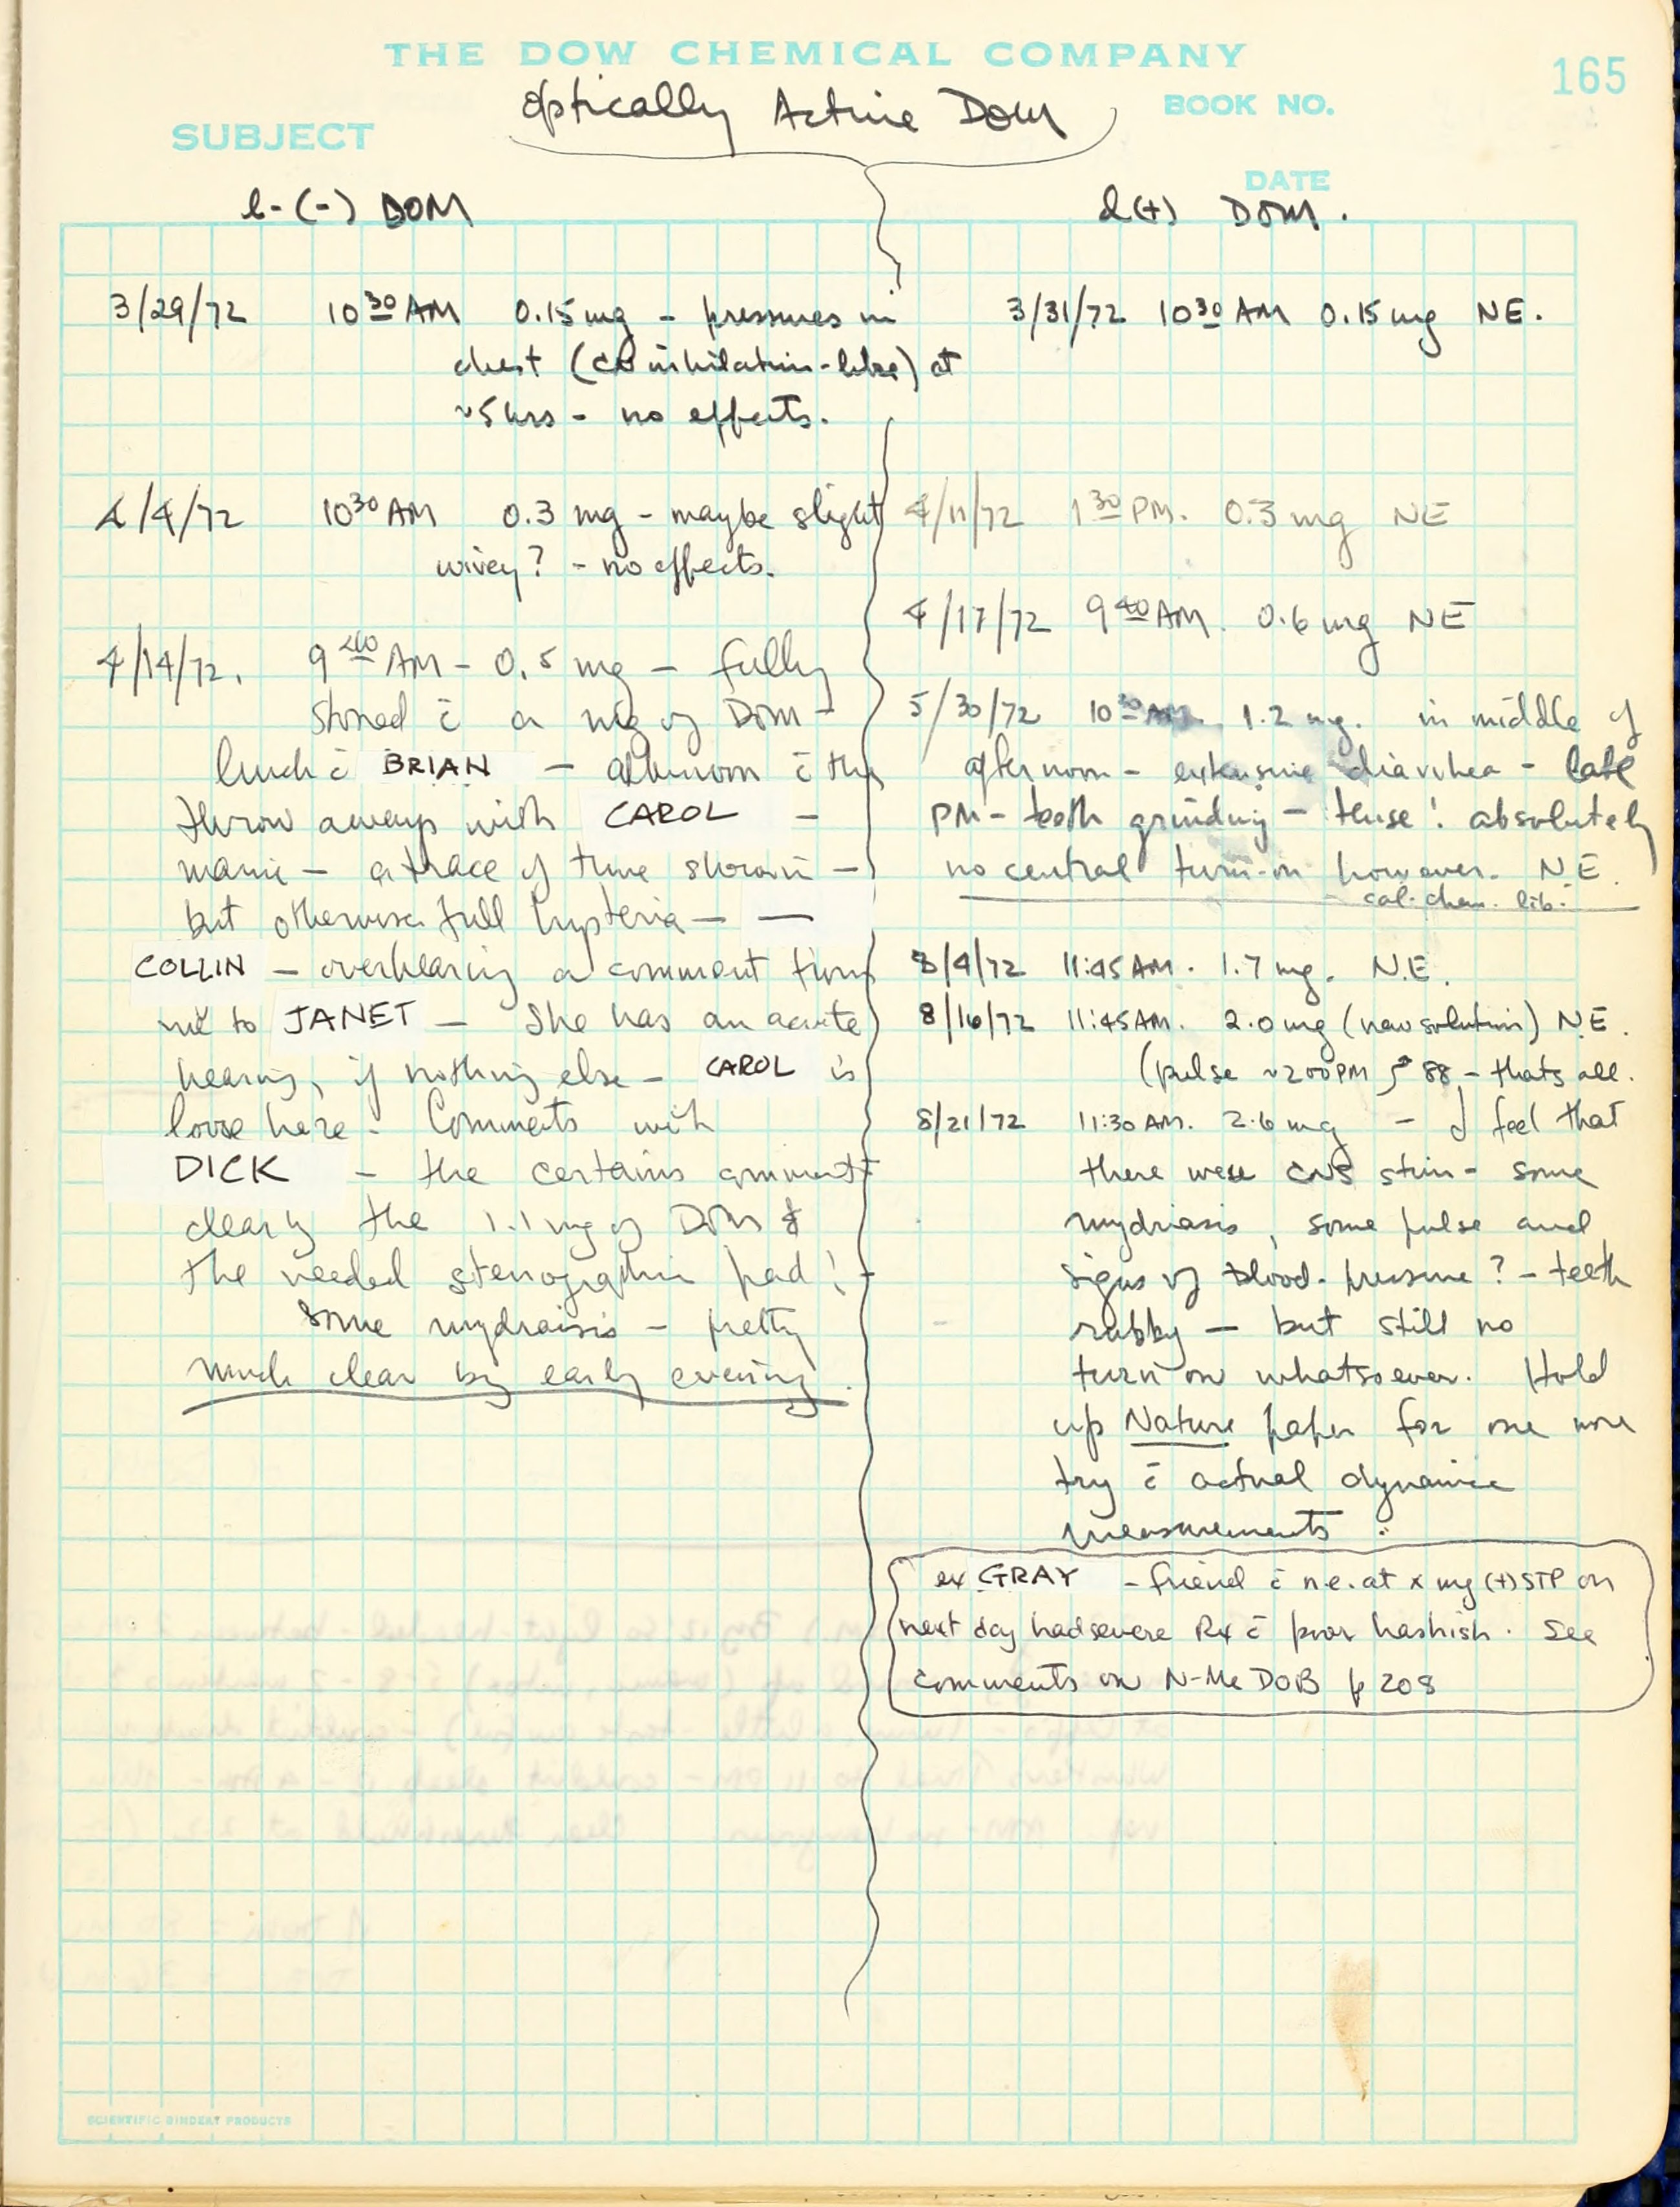 THE DOW CHEMICAL COMPANY
165
Optically Active DOM
BOOK NO.
SUBJECT
DATE
l-(-) DOM
3/29/72 10 30 AM 0.15 mg - pressures in
chest (CO inhilation-like) at
~5 hrs - no effects.
4/4/72 10 30 AM 0.3 mg - maybe slight
wirey? - no effects.
4/14/72. 9 40 AM - 0.5 mg - fully
stoned c̄ a mg of DOM -
lunch c̄ BRIAN - afternoon c̄ the
throw aways with CAROL -
manic - a trace of time
but otherwise full hysteria - -
COLLIN - overhearing a comment from
me to JANET - She has an acute
hearing, if nothing else - CAROL is
loose here - Comments with
DICK - the certains
clearly the 1.1 mg of DOM &
the needed stenographic pad! -
some mydraisis - pretty
much clear by early evening.
d(+) DOM.
3/31/72 10 30 AM 0.15 mg NE.
4/11/72 1 30 PM. 0.3 mg NE
4/17/72 9 40 AM. 0.6 mg NE
5/30/72 10 30 AM. 1.2 mg. in middle of
afternoon - extensive diarrhea - late
PM - teeth grinding - tense! absolutely
no central turn-on however. N.E.
cal. chem. lib.
8/4/72 11:45 AM. 1.7 mg. N.E.
8/16/72 11:45 AM. 2.0 mg (new solution) N.E.
(pulse ~2 00 PM 88 - thats all.
8/21/72 11:30 AM. 2.6 mg - I feel that
there were CNS stim - some
mydriasis, some pulse and
signs of blood-pressure? - teeth
rubby - but still no
turn on whatsoever. Hold
up Nature paper for one more
try c̄ actual dynamic
measurements.
ex GRAY - friend c̄ n.e. at x mg (+) STP on
next day had severe Rx c̄ poor hashish. See
comments on N-Me DOB p 208
SCIENTIFIC BINDERY PRODUCTS